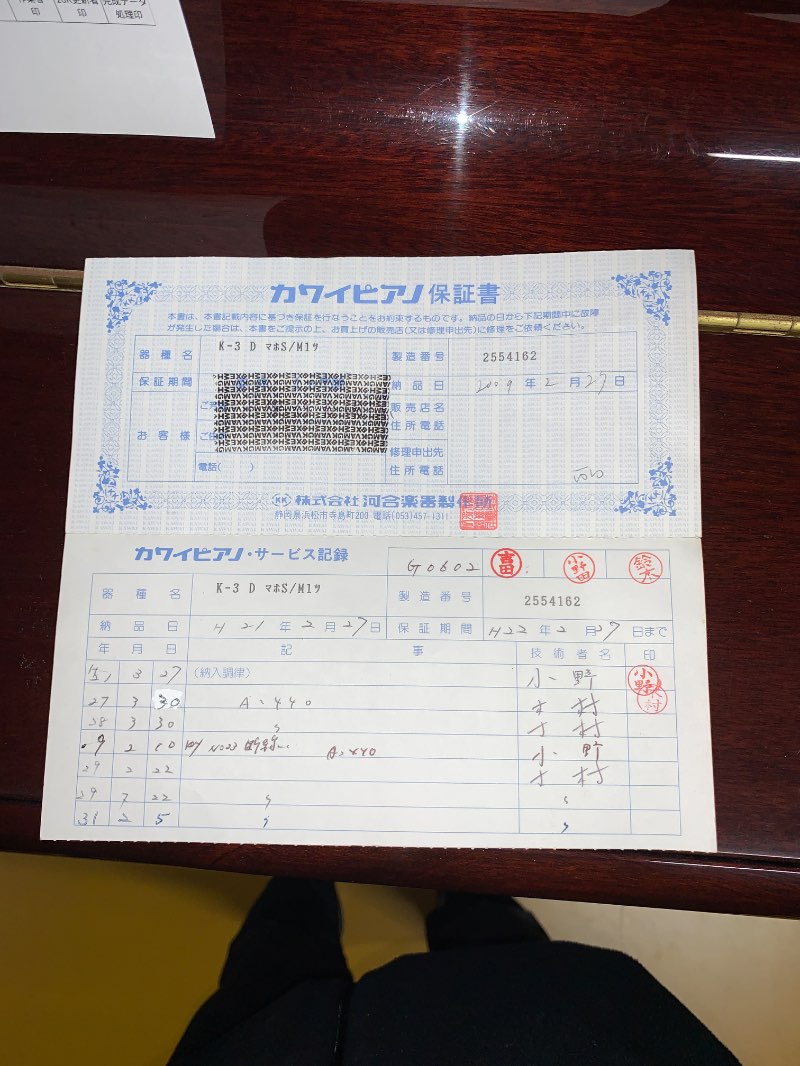 印
印
完成データ
処理印
カワイピアノ 保証書
本書は、本書記載内容に基づき保証を行なうことをお約束するものです。納品の日から下記期間中に故障
が発生した場合は、本書をご提示の上、お買上げの販売店(又は修理申出先)に修理をご依頼ください。
器種名 K-3 D マホS/M1ツ 製造番号 2554162
保証期間 納品日 2009年2月27日
お客様
電話( )
販売店名
住所電話
修理申出先
住所電話
株式会社 河合楽器製作所
静岡県浜松市寺島町200 電話(053)457-1311
カワイピアノ・サービス記録
G0602 小野田 鈴木
器種名 K-3 D マホS/M1ツ 製造番号 2554162
納品日 H21年2月27日 保証期間 H22年2月27日まで
年月日 記事 技術者名 印
3 27 (納入調律) 小野 小野
27 3 30 A=440 村
28 3 30 〃 村
2 10 Key No23 A=440 小野
29 2 22 村
29 7 22 〃 〃
31 2 5 〃 〃